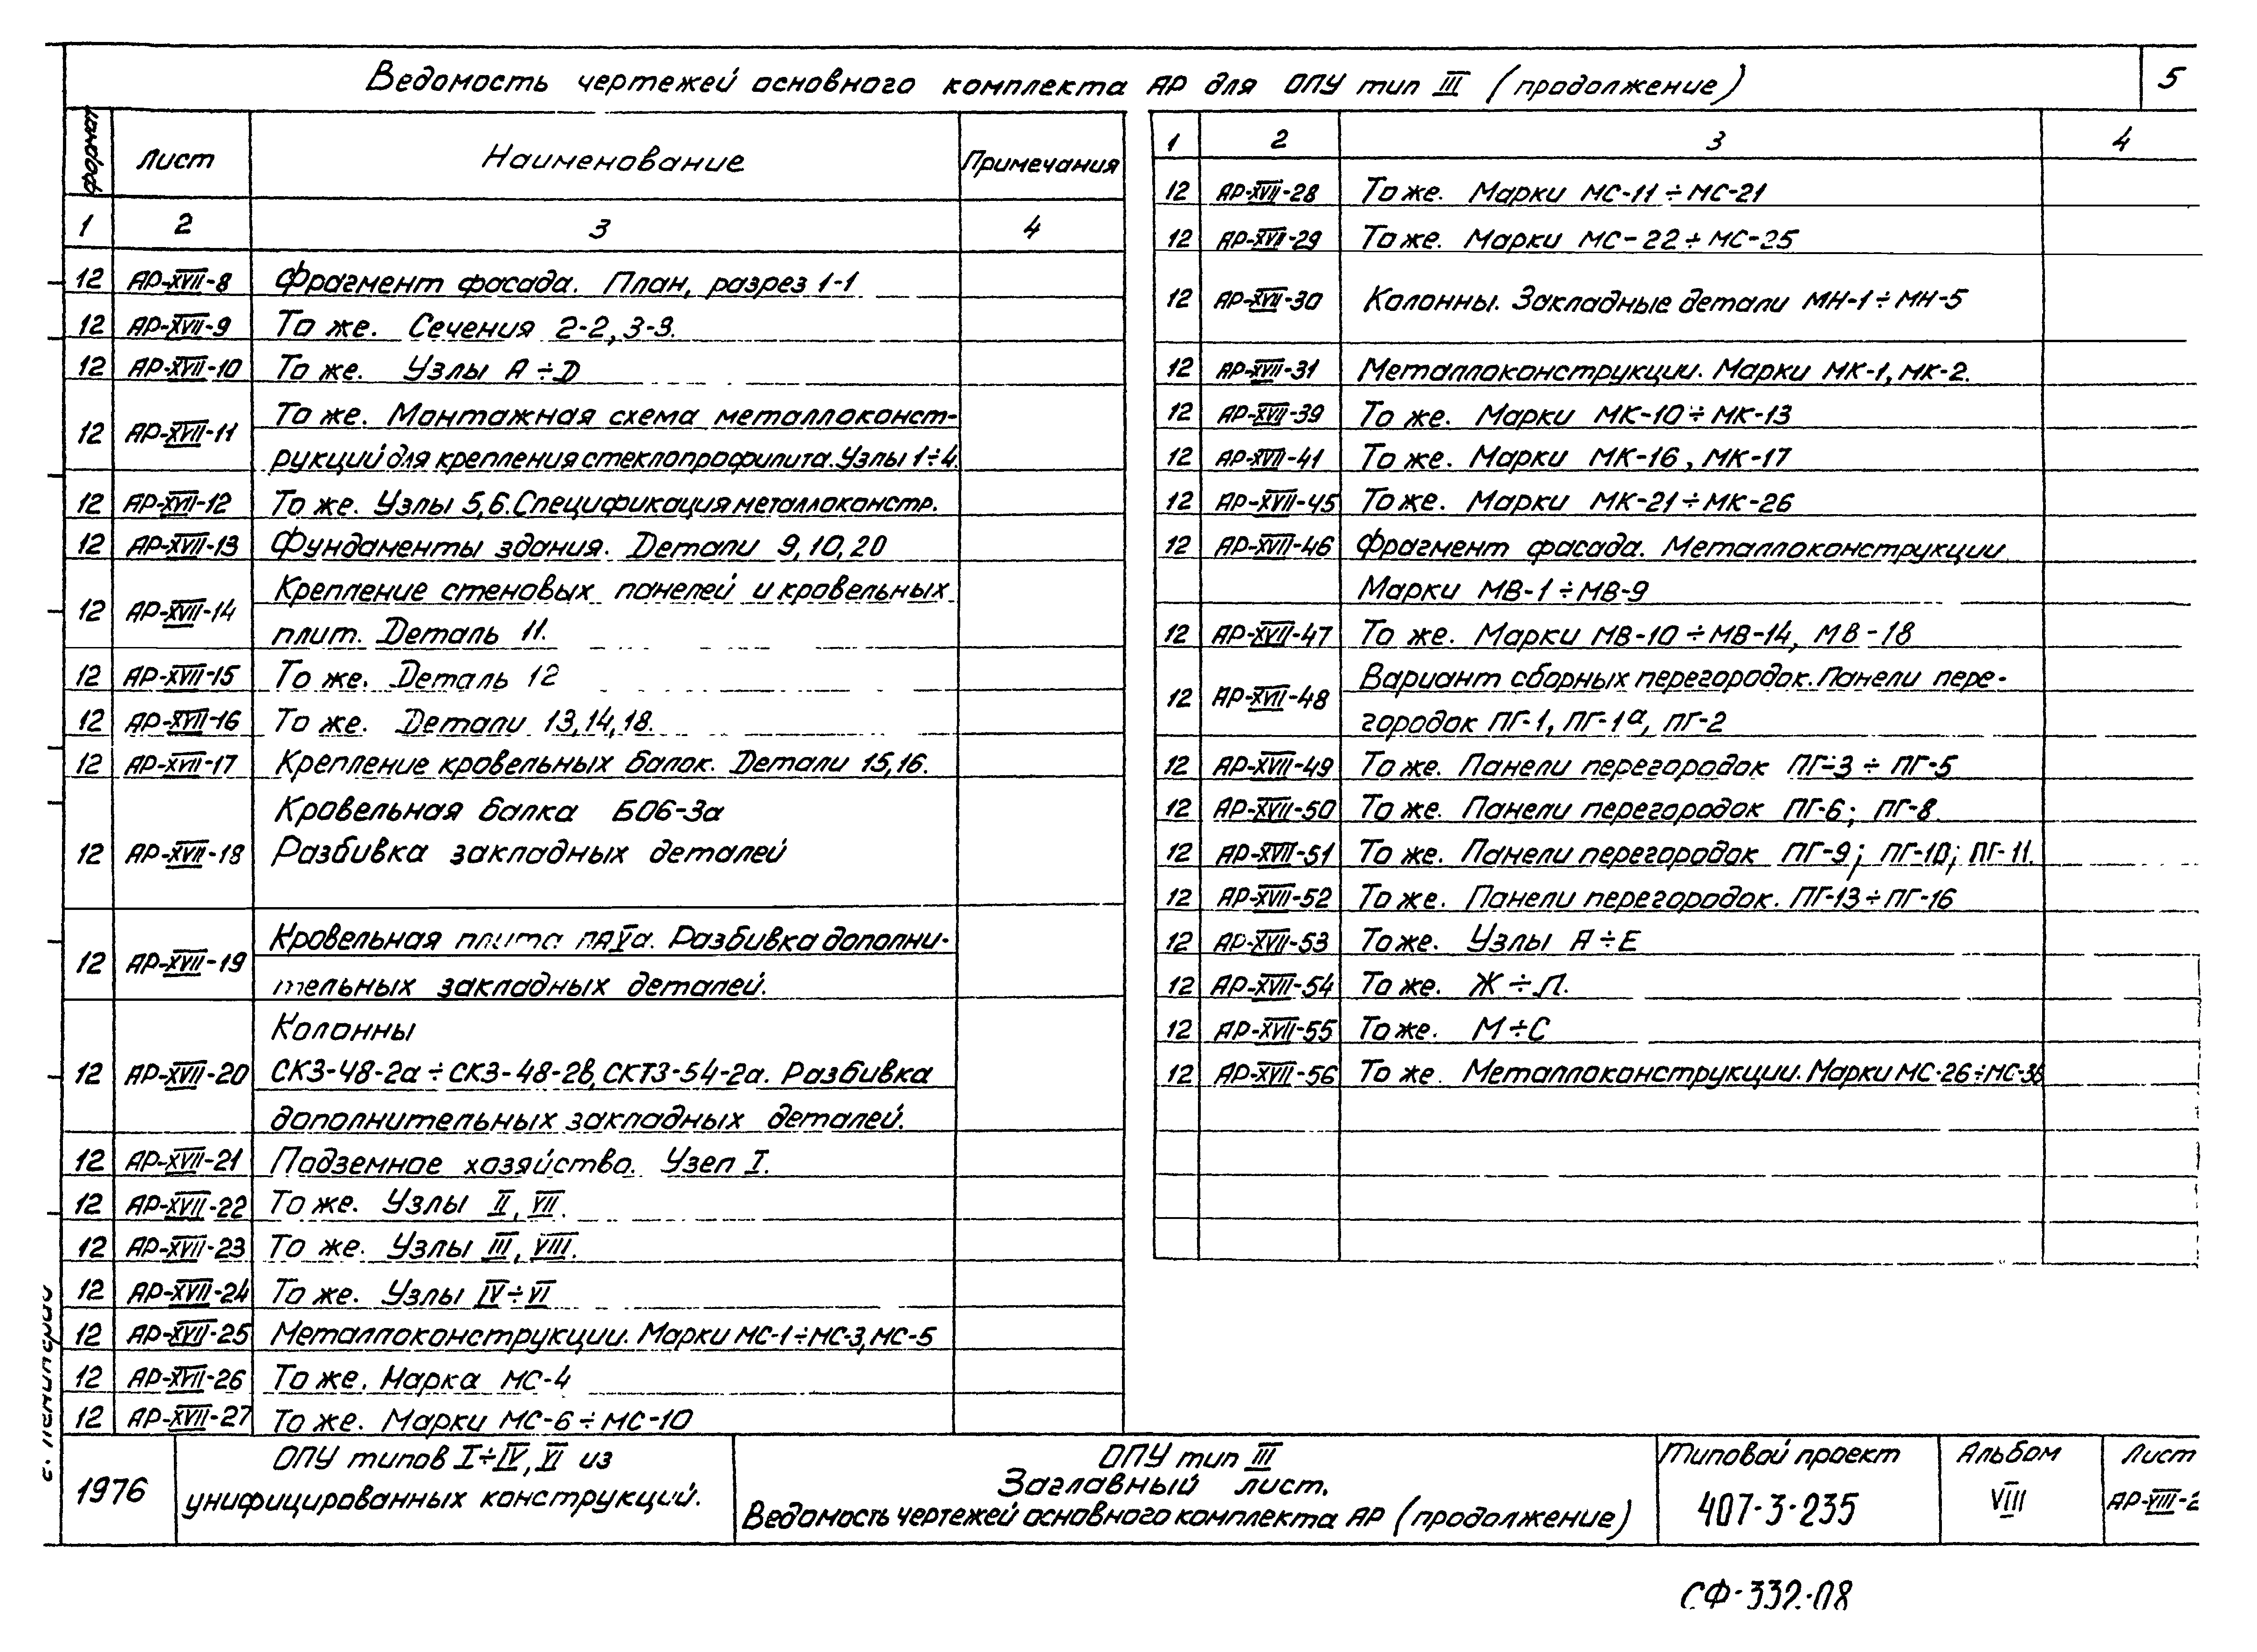 Ведомость чертежей основного комплекта АР для ОПУ тип III (продолжение) 5
формат Лист Наименование Примечания
1 2 3 4
12 АР-XVII-8 Фрагмент фасада. План, разрез 1-1
12 АР-XVII-9 То же. Сечения 2-2, 3-3.
12 АР-XVII-10 То же. Узлы А÷D
12 АР-XVII-11 То же. Монтажная схема металлоконст-
рукций для крепления стеклопрофилита. Узлы 1÷4.
12 АР-XVII-12 То же. Узлы 5,6. Спецификация металлоконстр.
12 АР-XVII-13 Фундаменты здания. Детали 9,10,20
12 АР-XVII-14 Крепление стеновых панелей и кровельных
плит. Деталь 11.
12 АР-XVII-15 То же. Деталь 12
12 АР-XVII-16 То же. Детали 13,14,18.
12 АР-XVII-17 Крепление кровельных балок. Детали 15,16.
Кровельная балка Б06-3а
12 АР-XVII-18 Разбивка закладных деталей
12 АР-XVII-19 Кровельная плита ПАVа. Разбивка дополни-
тельных закладных деталей.
Колонны
12 АР-XVII-20 СК3-48-2а÷СК3-48-2в, СКТ3-54-2а. Разбивка
дополнительных закладных деталей.
12 АР-XVII-21 Подземное хозяйство. Узел I.
12 АР-XVII-22 То же. Узлы II, VII.
12 АР-XVII-23 То же. Узлы III, VIII.
12 АР-XVII-24 То же. Узлы IV÷VI
12 АР-XVII-25 Металлоконструкции. Марки МС-1÷МС-3, МС-5
12 АР-XVII-26 То же. Марка МС-4
12 АР-XVII-27 То же. Марки МС-6÷МС-10
1 2 3 4
12 АР-XVII-28 То же. Марки МС-11÷МС-21
12 АР-XVII-29 То же. Марки МС-22÷МС-25
12 АР-XVII-30 Колонны. Закладные детали МН-1÷МН-5
12 АР-XVII-31 Металлоконструкции. Марки МК-1, МК-2.
12 АР-XVII-39 То же. Марки МК-10÷МК-13
12 АР-XVII-41 То же. Марки МК-16, МК-17
12 АР-XVII-45 То же. Марки МК-21÷МК-26
12 АР-XVII-46 Фрагмент фасада. Металлоконструкции
Марки МВ-1÷МВ-9
12 АР-XVII-47 То же. Марки МВ-10÷МВ-14, МВ-18
12 АР-XVII-48 Вариант сборных перегородок. Панели пере-
городок ПГ-1, ПГ-1а, ПГ-2
12 АР-XVII-49 То же. Панели перегородок ПГ-3÷ПГ-5
12 АР-XVII-50 То же. Панели перегородок ПГ-6; ПГ-8
12 АР-XVII-51 То же. Панели перегородок ПГ-9; ПГ-10; ПГ-11.
12 АР-XVII-52 То же. Панели перегородок. ПГ-13÷ПГ-16
12 АР-XVII-53 То же. Узлы А÷Е
12 АР-XVII-54 То же. Ж÷Л.
12 АР-XVII-55 То же. М÷С
12 АР-XVII-56 То же. Металлоконструкции. Марки МС-26÷МС-38
1976
ОПУ типов I÷IV, VI из
унифицированных конструкций.
ОПУ тип III
Заглавный лист.
Ведомость чертежей основного комплекта АР (продолжение)
Типовой проект
407-3-235
Альбом
VIII
Лист
АР-VIII-2
СФ-332-08